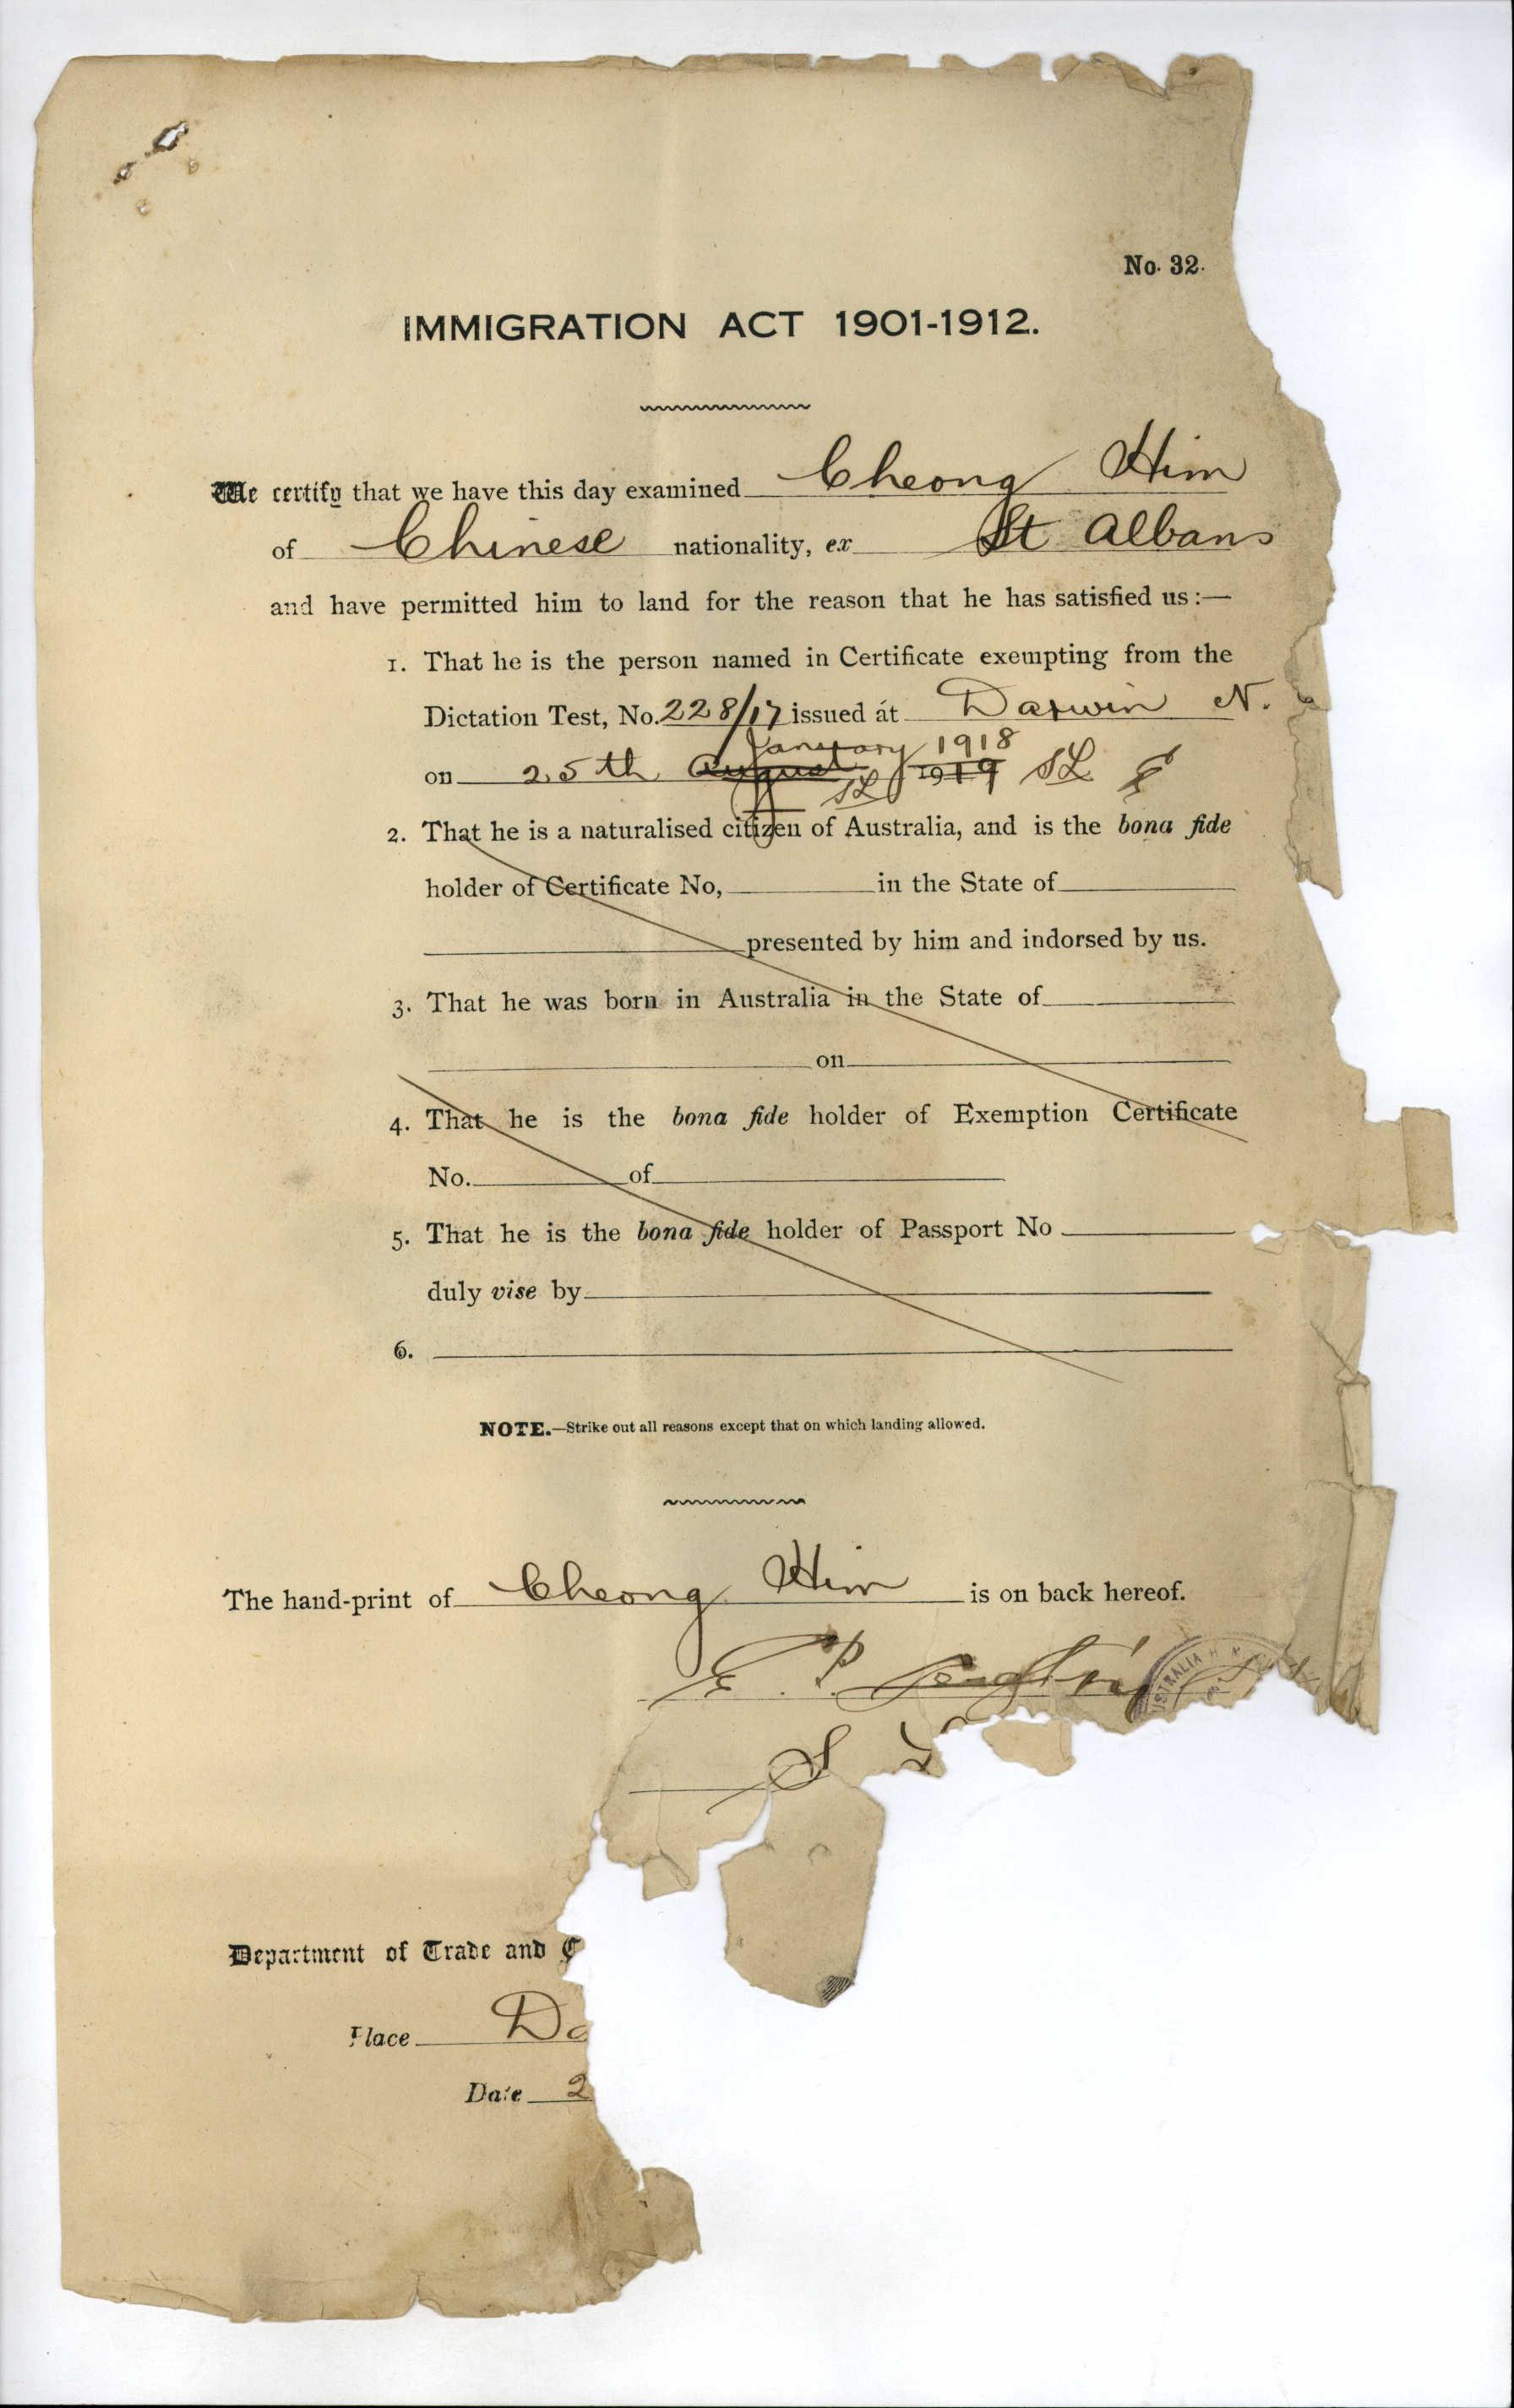 No. 32.
IMMIGRATION ACT 1901-1912.
We certify that we have this day examined Cheong Him
of Chinese nationality, ex St Albans
and have permitted him to land for the reason that he has satisfied us:—
1. That he is the person named in Certificate exempting from the
Dictation Test, No. 228/17 issued at Darwin N.
January 1918
on 25th August 1919 SL
SL
2. That he is a naturalised citizen of Australia, and is the bona fide
holder of Certificate No, in the State of
presented by him and indorsed by us.
3. That he was born in Australia in the State of
on
4. That he is the bona fide holder of Exemption Certificate
No. of
5. That he is the bona fide holder of Passport No
duly vise by
6.
NOTE.—Strike out all reasons except that on which landing allowed.
The hand-print of Cheong Him is on back hereof.
E. P.
S L
Department of Trade and C
Place Da
Date 2